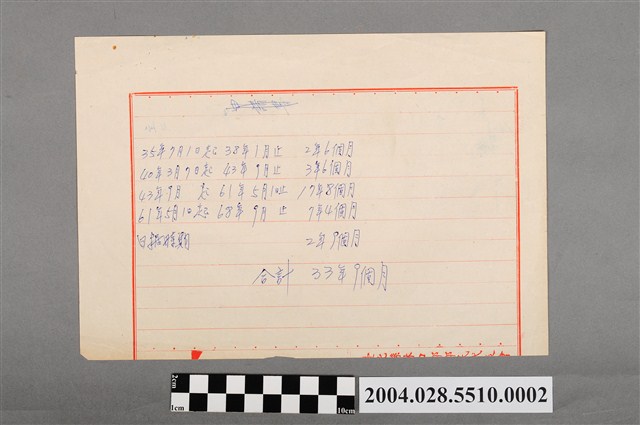 35年7月1日起 38年1月止 2年6個月
40年3月7日起 43年9月止 3年6個月
43年9月 起 61年5月1日止 17年8個月
61年5月1日起 68年9月止 7年4個月
日據時期 2年9個月
合計 33年9個月
2cm
1cm
10cm
2004.028.5510.0002